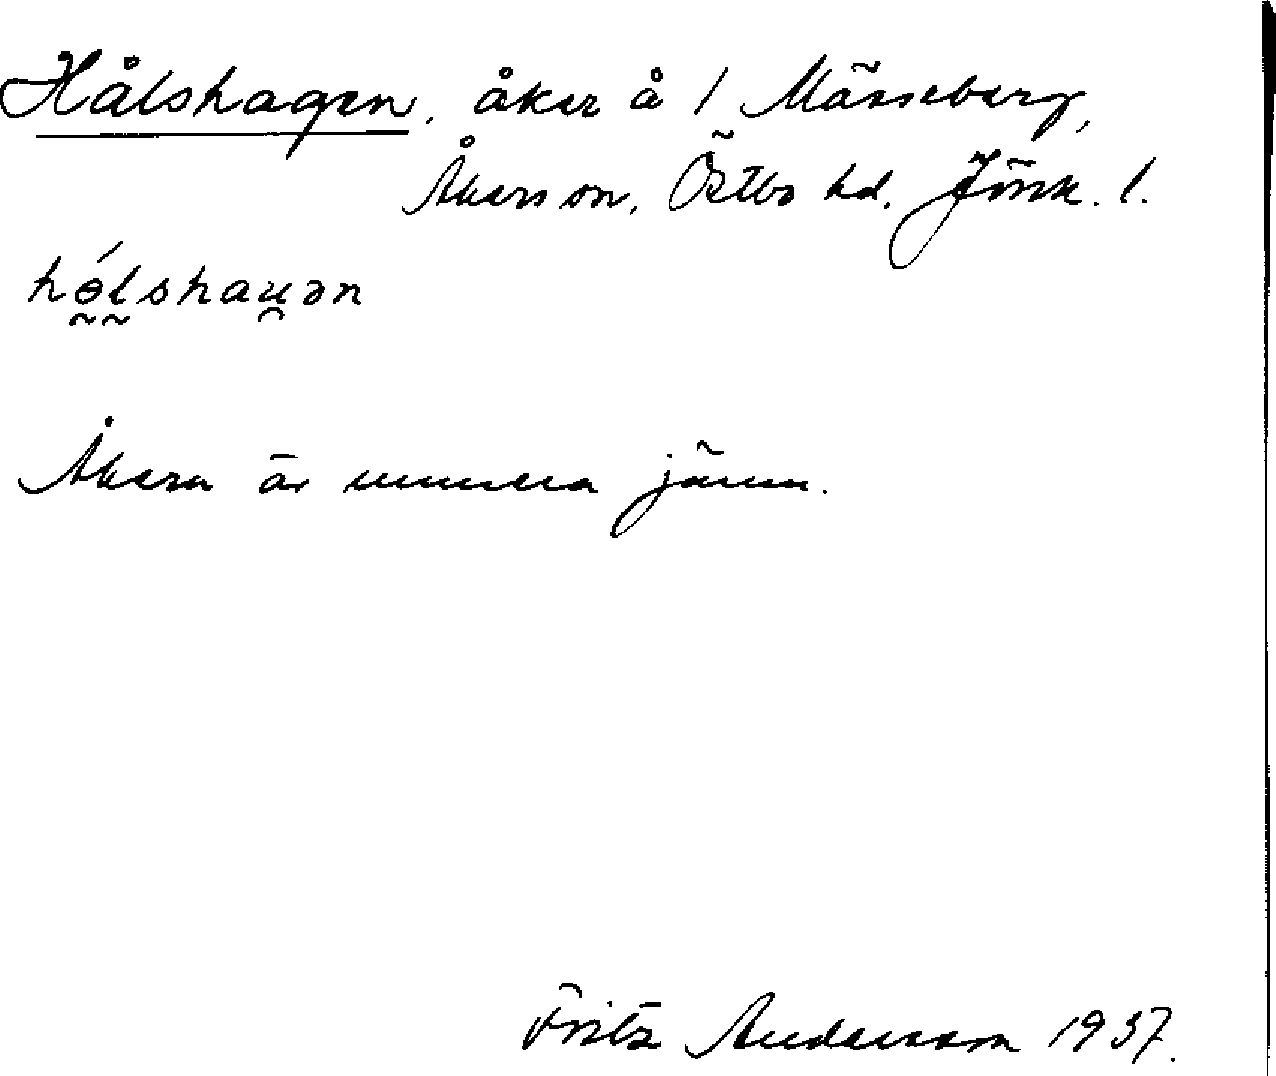 Hålshagen, åker å 1 Mässeberg,
Åkers sn, Östbo hd. Jönk. l.
hɵ́lshau̯ən
Åkern är numera jämn.
Fritz Andersson 1937.